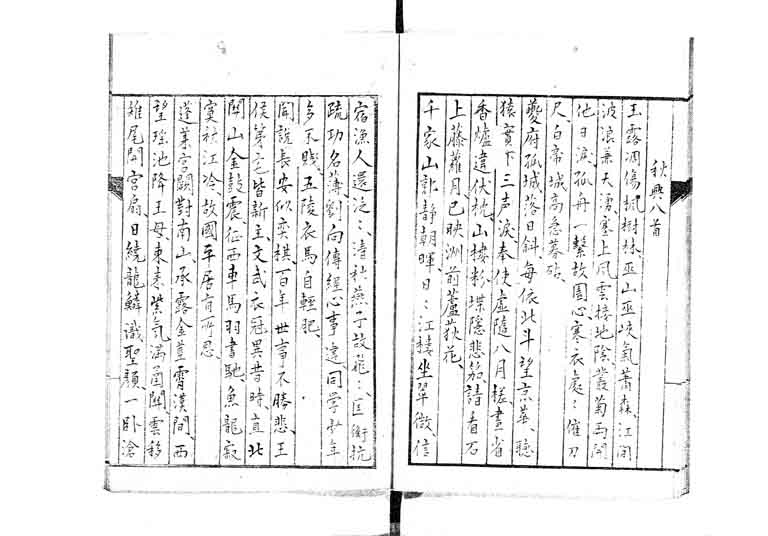 秋興八首
玉露凋傷楓樹林、巫山巫峽氣蕭森、江間
波浪兼天湧、塞上風雲接地陰、叢菊兩開
他日淚、孤舟一繫故園心、寒衣處〻催刀
尺、白帝城高急暮砧、
夔府孤城落日斜、每依北斗望京華、聽
猿實下三声淚、奉使虛隨八月槎、畫省
香爐違伏枕、山樓粉堞隱悲笳、請看石
上藤蘿月、已映洲前蘆荻花、
千家山郭靜朝暉、日〻江樓坐翠微、信
宿漁人還泛〻、清秋燕子故飛〻、匡衡抗
疏功名薄、劉向傳經心事違、同學少年
多不賤、五陵衣馬自輕肥、
聞說長安似奕棋、百年世事不勝悲、王
侯第宅皆新主、文武衣冠異昔時、直北
関山金鼓震、征西車馬羽書馳、魚龍寂
寞秋江冷、故國平居有所思、
蓬萊宮闕對南山、承露金莖霄漢間、西
望瑤池降王母、東来紫氣滿函関、雲移
雉尾開宮扇、日繞龍鱗識聖顏、一卧滄